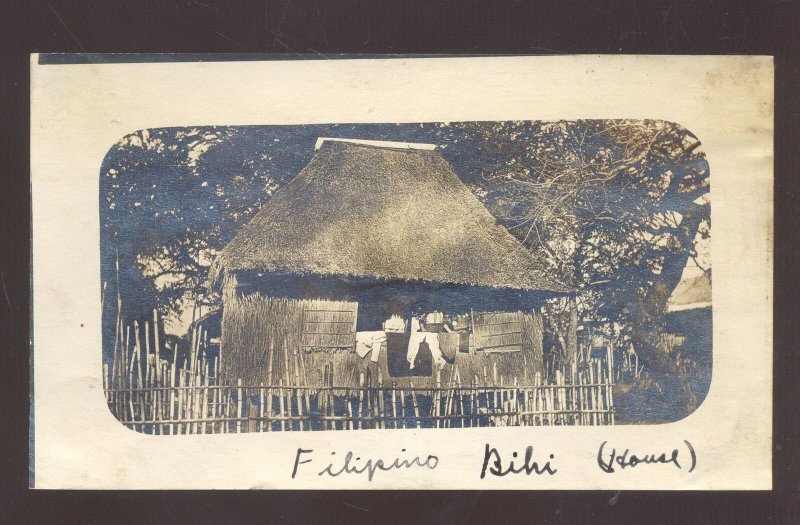 Filipino Bihi (House)